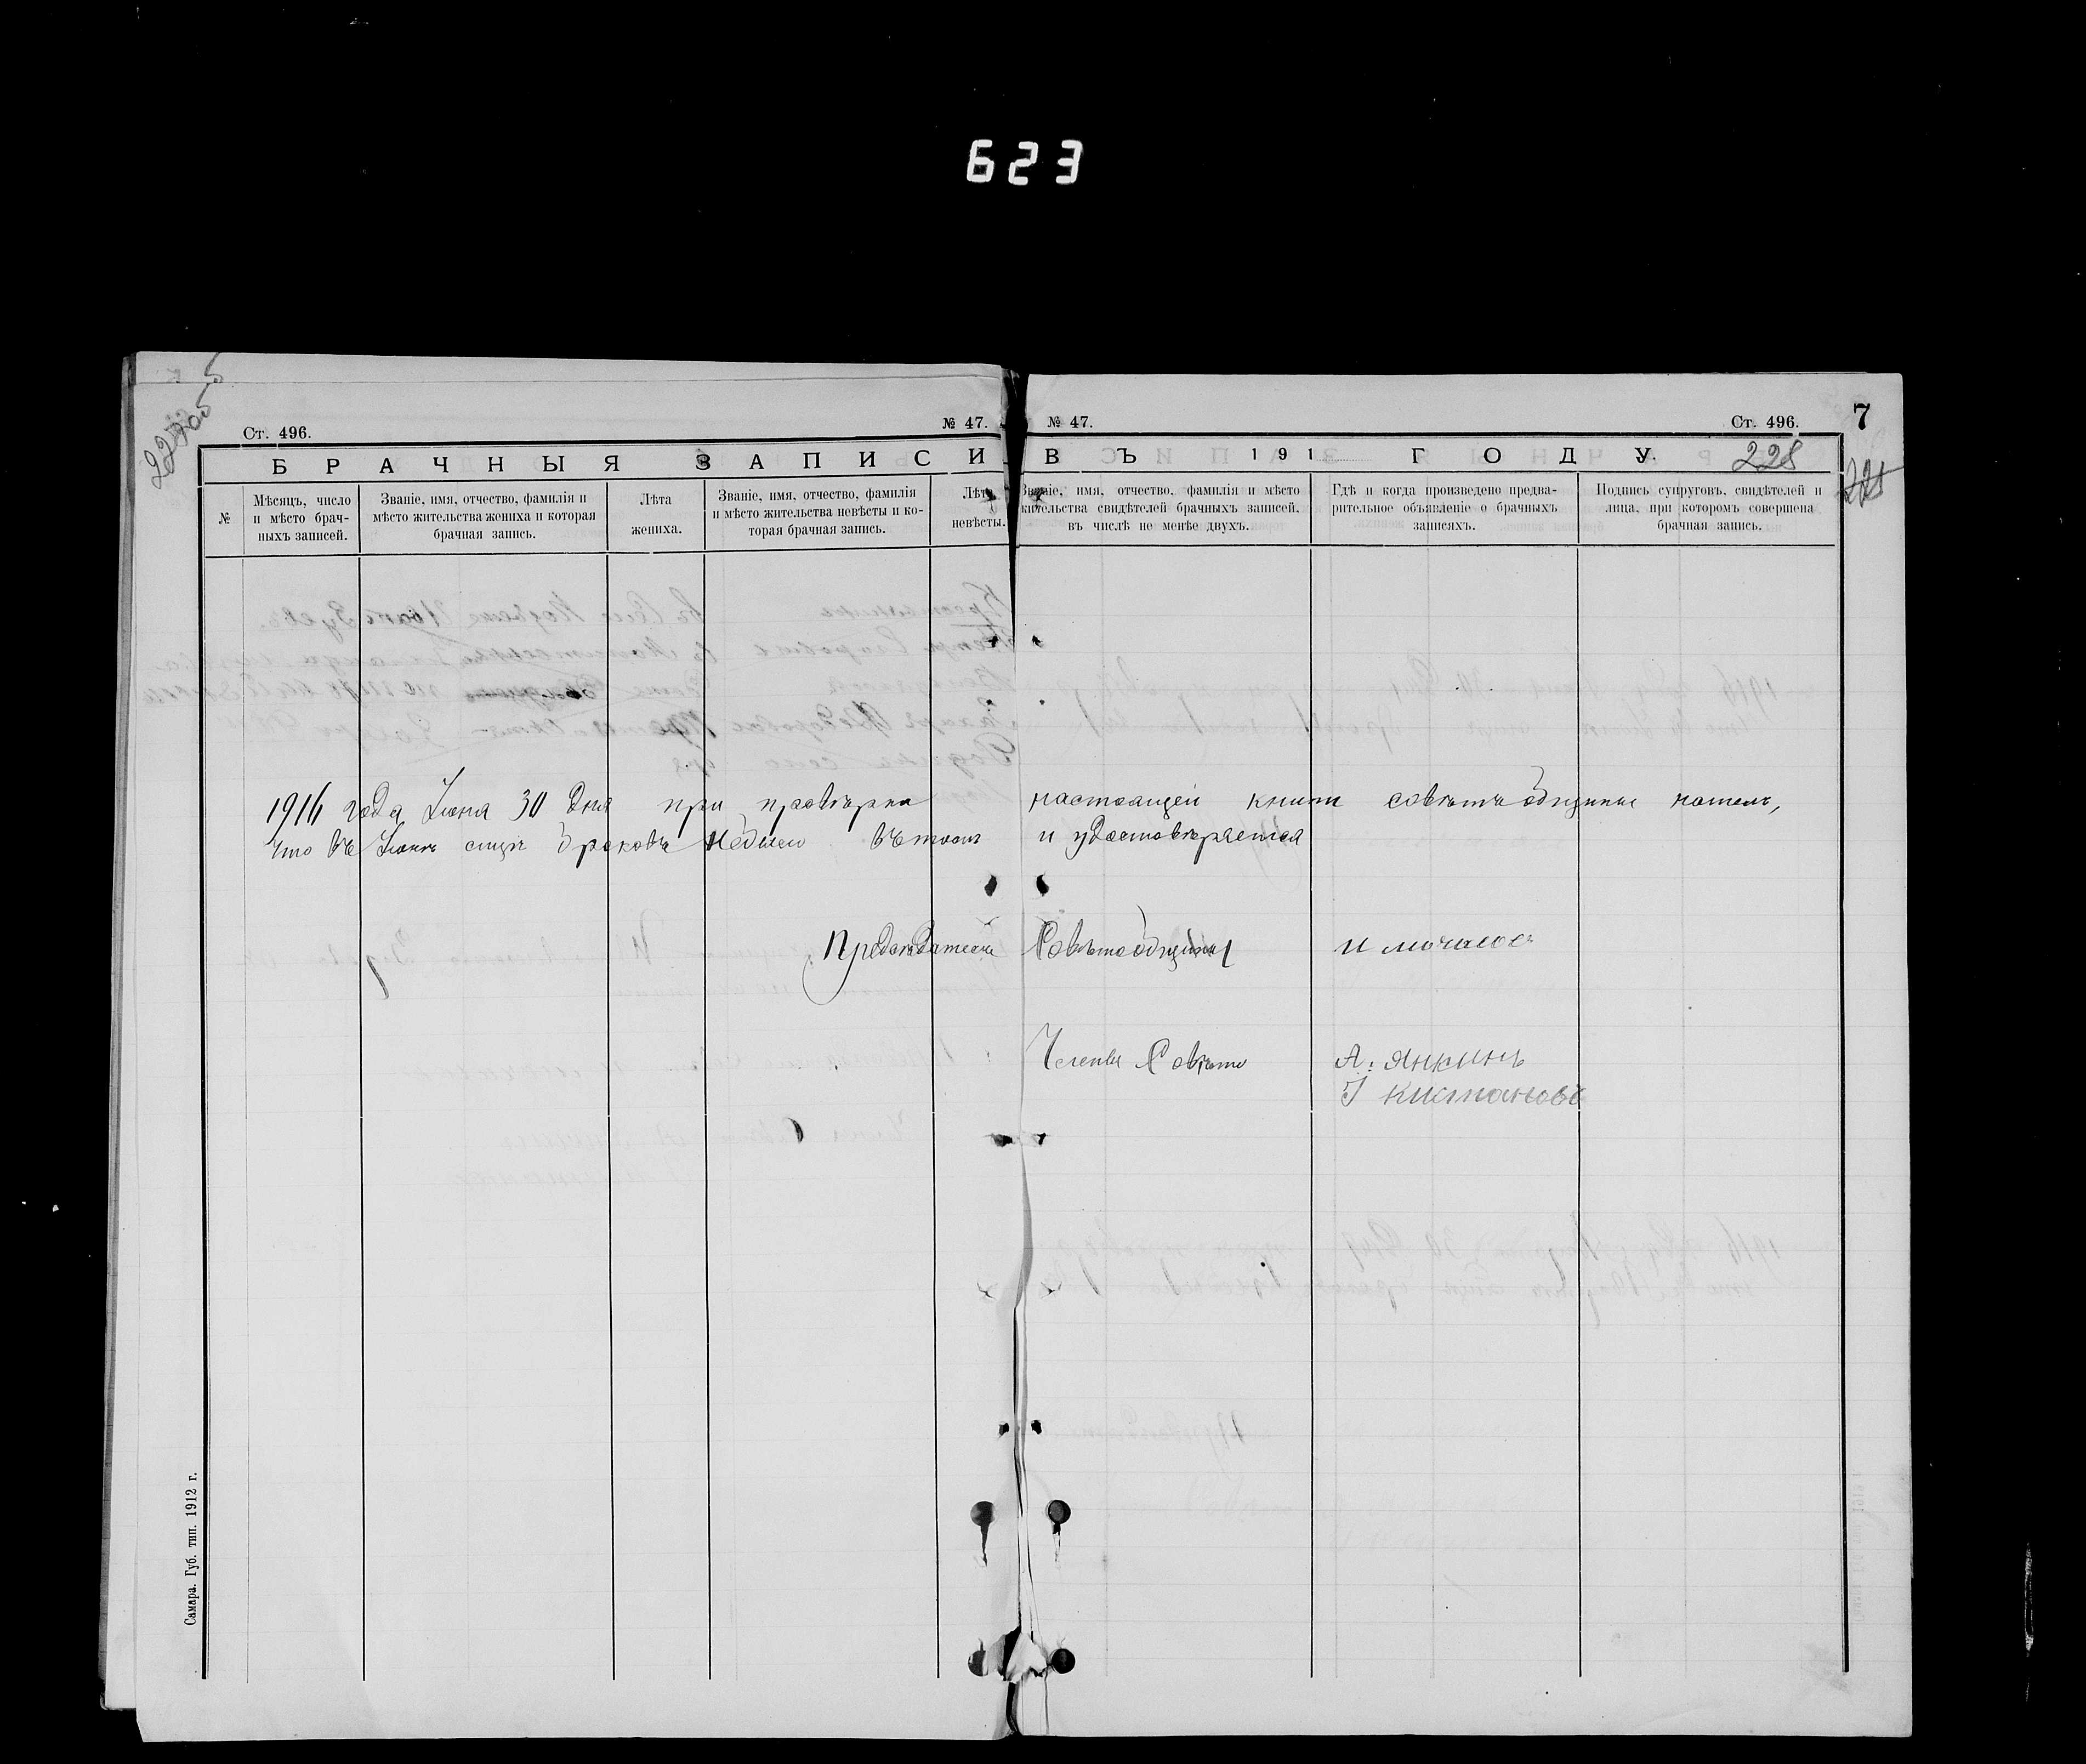 623
7
Ст. 496. № 47. № 47. Ст. 496.
БРАЧНЫЯ ЗАПИСИ ВЪ 191 ГОДУ. 228
№
Мѣсяцъ, число
и мѣсто брач-
ныхъ записей.
Званіе, имя, отчество, фамилія и
мѣсто жительства жениха и которая
брачная запись.
Лѣта
жениха.
Званіе, имя, отчество, фамилія
и мѣсто жительства невѣсты и ко-
торая брачная запись.
Лѣта
невѣсты.
Званіе, имя, отчество, фамилія и мѣсто
жительства свидѣтелей брачныхъ записей,
въ числѣ не менѣе двухъ.
Гдѣ и когда произведено предва-
рительное объявленіе о брачныхъ
записяхъ.
Подпись супруговъ, свидѣтелей и
лица, при которомъ совершена
брачная запись.
1916 года Іюня 30 дня при провѣрки настоящей книги совѣтъ общины нашелъ,
что въ Іюнѣ браковъ небыло въ томъ и удостовѣряется
Председатель Совѣта общины
Члены Совѣта А. Янкинъ
І Кистановъ
Самара. Губ. тип. 1912 г.